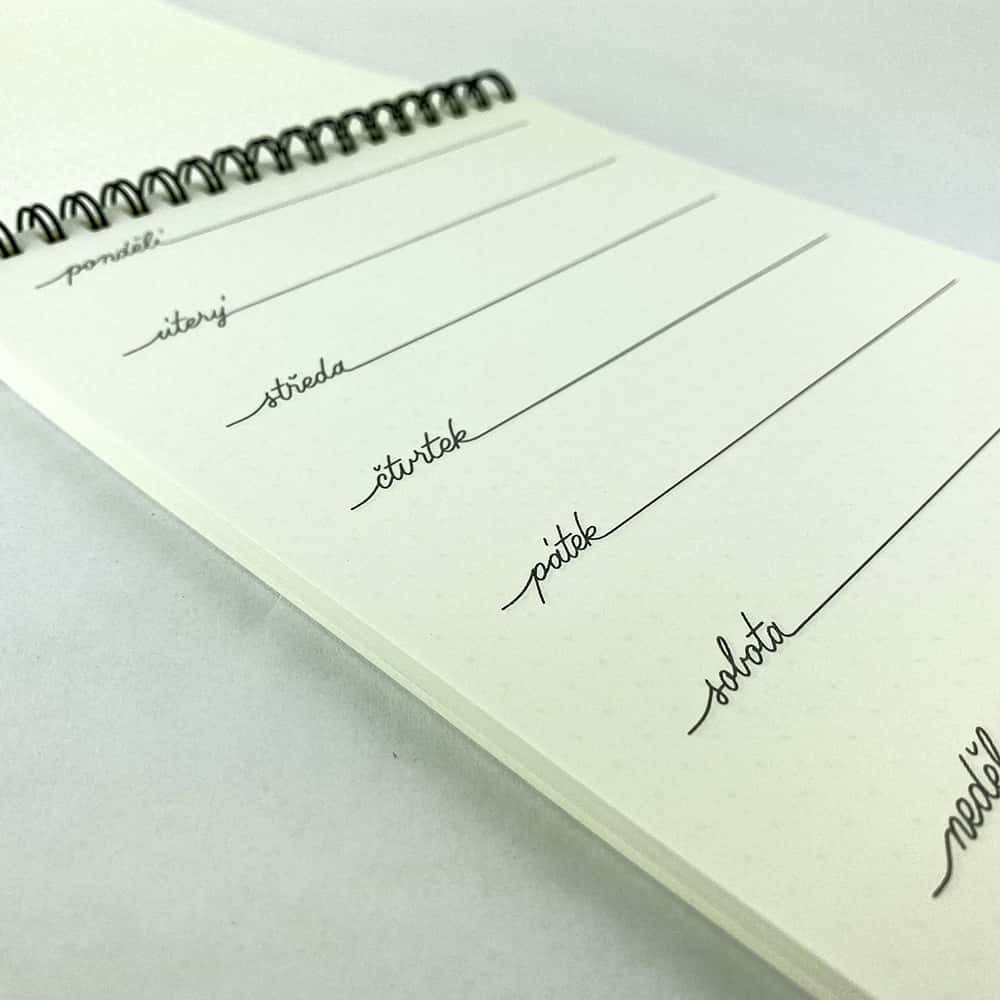 pondělí
úterý
středa
čtvrtek
pátek
sobota
neděl